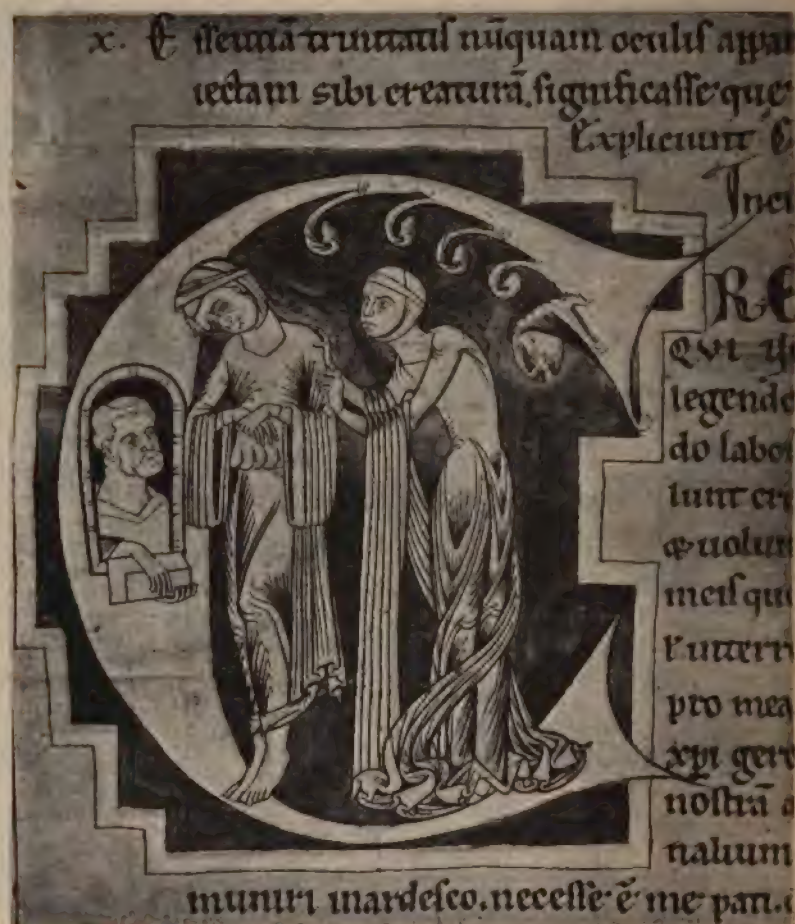 x. Essentiā trinitatis nūquam oculis appar
iectam sibi creaturā. significasse que
Expliciunt C
Inci
C RE
QVI
legend
do labo
lunt cre
& uolun
meis qu
l' interr
pro mea
xpi gero
nostrā a
nalium
muniri inardesco. necesse ē me pati.